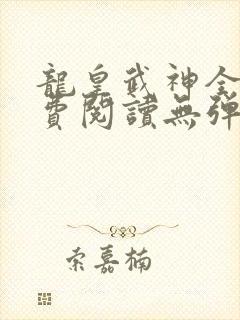 龍皇武神全
費閱讀無彈
索嘉楠